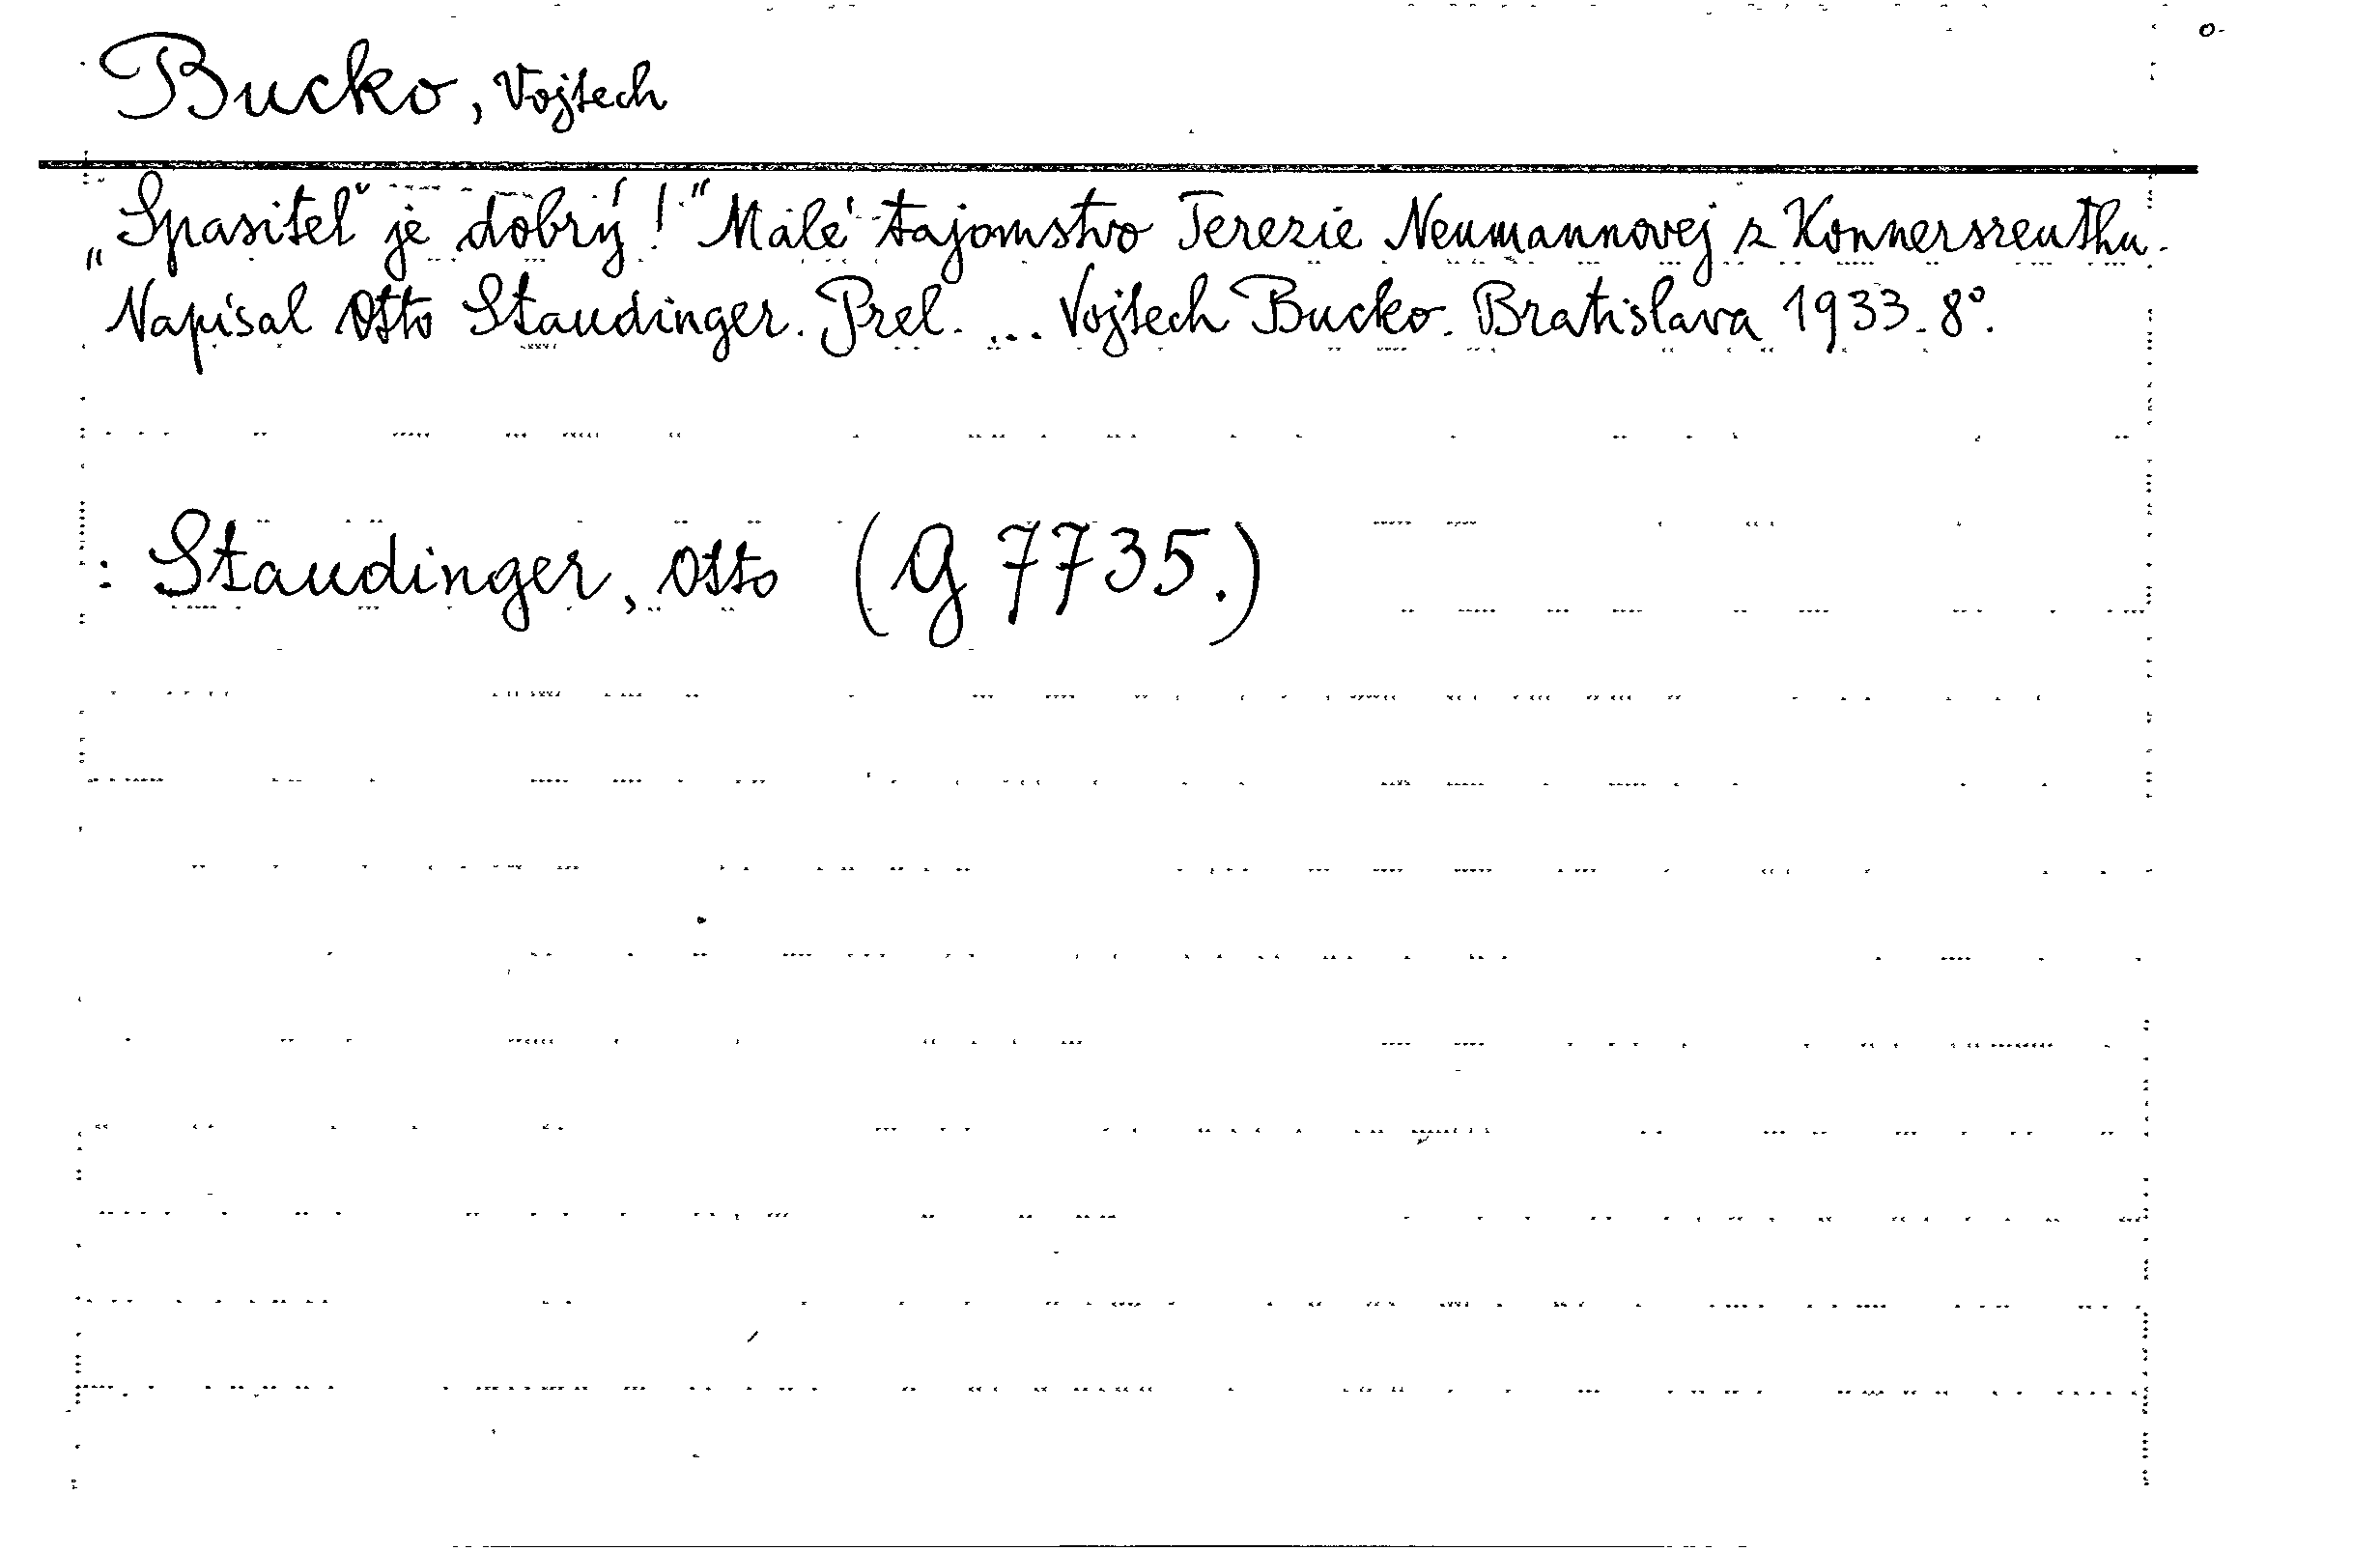 Bucko, Vojtech
„Spasiteľ je dobrý!" Malé tajomstvo Terezie Neumannovej z Konnersreuthu.
Napísal Otto Staudinger. Prel. ... Vojtech Bucko. Bratislava 1933. 8°.
: Staudinger, Otto (G 7735.)